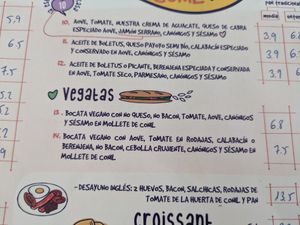 10
pan tradicional
media
5.9
10. AOVE, TOMATE, NUESTRA CREMA DE AGUACATE, QUESO DE CABRA
ESPECIADO AOVE, JAMÓN SERRANO, CANÓNIGOS Y SÉSAMO
3.9
6.5
11. ACEITE DE BOLETUS, QUESO PAYOYO SEMI BÍO, CALABACÍN ESPECIADO
Y CONSERVADO EN AOVE, CANÓNIGOS Y SÉSAMO
3.9
6.8
12. ACEITE DE BOLETUS O PICANTE, BERENJENA ESPECIADA Y CONSERVADA
EN AOVE, TOMATE SECO, PARMESANO, CANÓNIGOS Y SÉSAMO
7.5
VEGATAS
13. BOCATA VEGANO CON NO QUESO, NO BACON, TOMATE, AOVE, CANÓNIGOS
Y SÉSAMO EN MOLLETE DE CONIL
6.8
14. BOCATA VEGANO CON AOVE, TOMATE EN RODAJAS, CALABACÍN O
BERENJENA, NO BACON, CEBOLLA CRUJIENTE, CANÓNIGOS Y SÉSAMO
EN MOLLETE DE CONIL
7.5
- DESAYUNO INGLÉS: 2 HUEVOS, BACON, SALCHICAS, RODAJAS DE
TOMATE DE LA HUERTA DE CONIL Y PAN
13.5
croissant